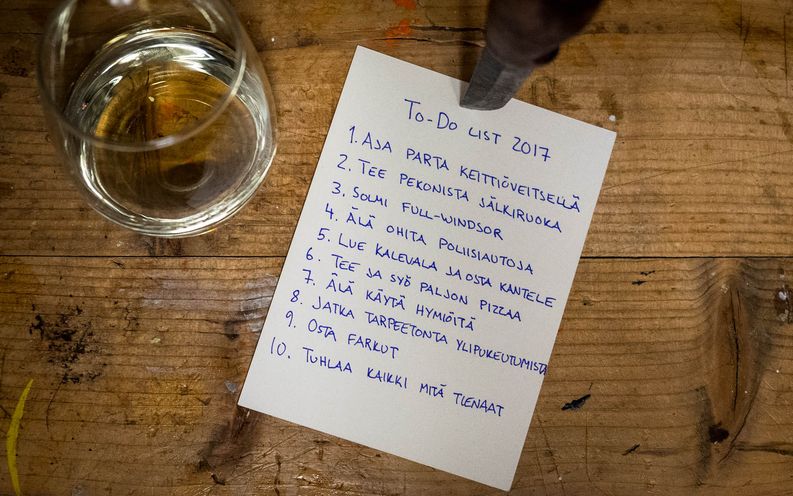 To-Do list 2017
1. Aja parta keittiöveitsellä
2. Tee pekonista jälkiruoka
3. Solmi full-windsor
4. Älä ohita poliisiautoja
5. Lue Kalevala ja osta kantele
6. Tee ja syö paljon pizzaa
7. Älä käytä hymiöitä
8. Jatka tarpeetonta ylipukeutumista
9. Osta farkut
10. Tuhlaa kaikki mitä tienaat